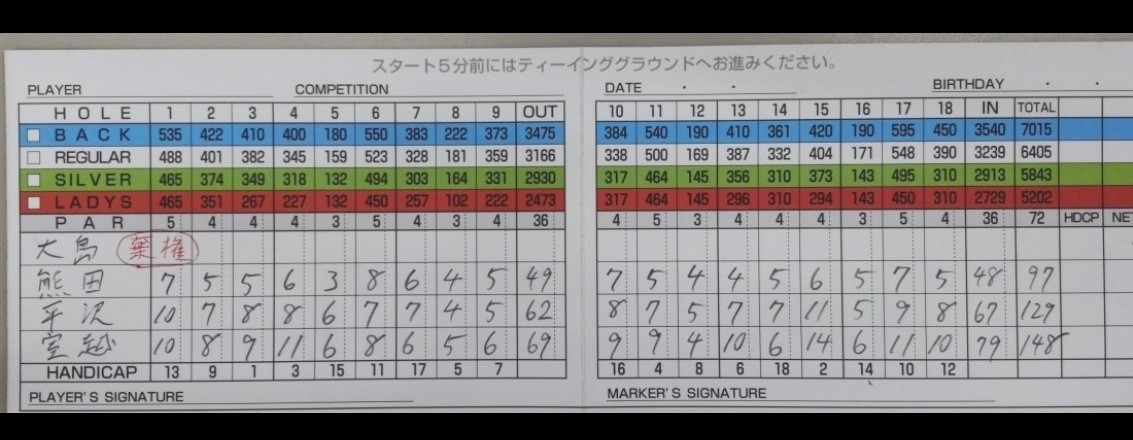 スタート5分前にはティーインググラウンドへお進みください。
PLAYER COMPETITION DATE ・ ・ BIRTHDAY ・ ・
HOLE 1 2 3 4 5 6 7 8 9 OUT 10 11 12 13 14 15 16 17 18 IN TOTAL
BACK 535 422 410 400 180 550 383 222 373 3475 384 540 190 410 361 420 190 595 450 3540 7015
REGULAR 488 401 382 345 159 523 328 181 359 3166 338 500 169 387 332 404 171 548 390 3239 6405
SILVER 465 374 349 318 132 494 303 164 331 2930 317 464 145 356 310 373 143 495 310 2913 5843
LADYS 465 351 267 227 132 450 257 102 222 2473 317 464 145 296 310 294 143 450 310 2729 5202
PAR 5 4 4 4 3 5 4 3 4 36 4 5 3 4 4 4 3 5 4 36 72 HDCP NE
大島 棄権
熊田 7 5 5 6 3 8 6 4 5 49 7 5 4 4 5 6 5 7 5 48 97
平沢 10 7 8 8 6 7 7 4 5 62 8 7 5 7 7 11 5 9 8 67 129
室越 10 8 9 11 6 8 6 5 6 69 9 9 4 10 6 14 6 11 10 79 148
HANDICAP 13 9 1 3 15 11 17 5 7 16 4 8 6 18 2 14 10 12
PLAYER'S SIGNATURE MARKER'S SIGNATURE